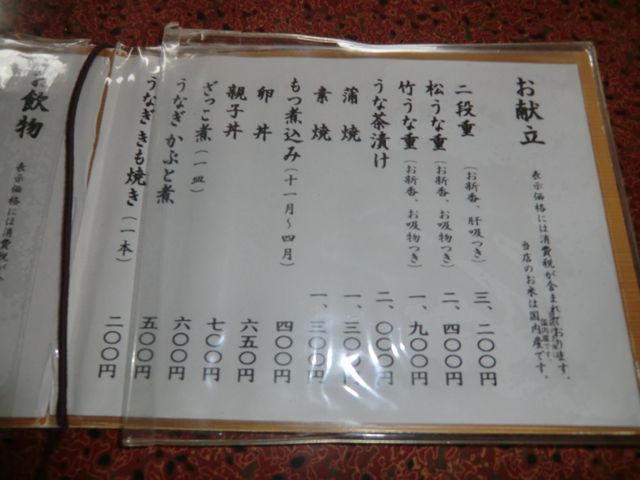 お献立
表示価格には消費税が含まれております。
当店のお米は国内産です。
二段重（お新香、肝吸つき） 三、二〇〇円
松うな重（お新香、お吸物つき） 二、四〇〇円
竹うな重（お新香、お吸物つき） 一、九〇〇円
うな茶漬け 二、〇〇〇円
蒲焼 一、三〇〇円
素焼 一、三〇〇円
もつ煮込み（十一月～四月） 四〇〇円
卵丼 六五〇円
親子丼 七〇〇円
ざっこ煮（一皿） 六〇〇円
うなぎかぶと煮 五〇〇円
うなぎきも焼き（一本） 二〇〇円
お飲物
表示価格には消費税が